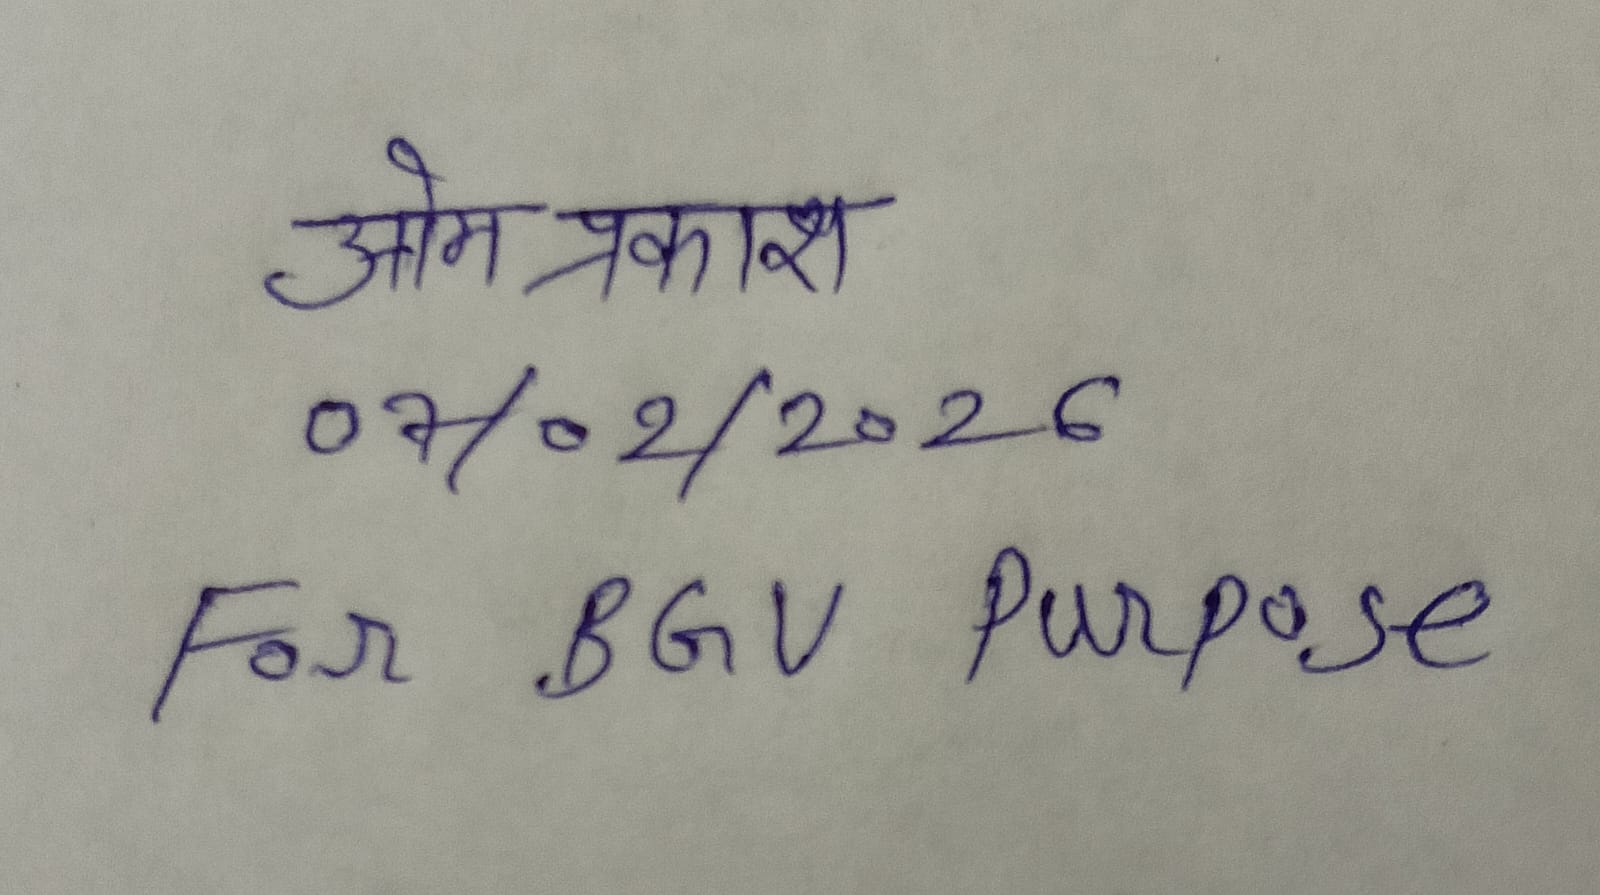 ओम प्रकाश
07/02/2026
For BGV Purpose